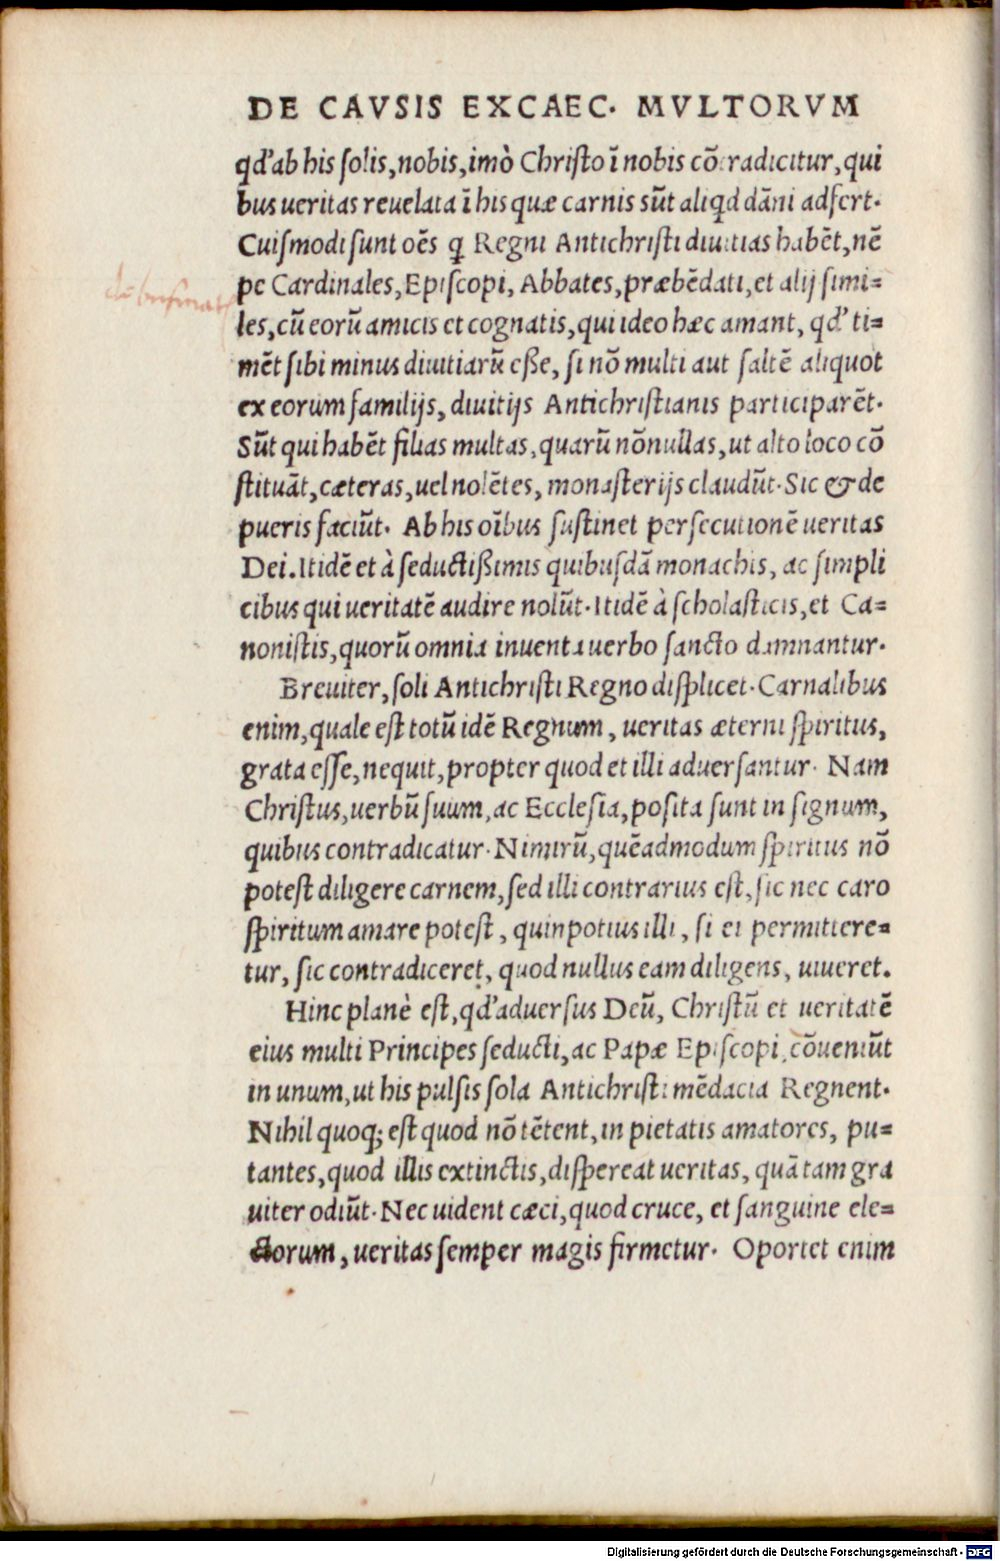 DE CAVSIS EXCAEC. MVLTORVM
qd' ab his solis, nobis, imò Christo ī nobis cōtradicitur, qui
bus ueritas reuelata ī his quæ carnis sūt aliqd dāni adfert.
Cuiſmodi ſunt oēs q̄ Regni Antichriſti diuitias habēt, nē
pe Cardinales, Epiſcopi, Abbates, præbēdati, et alij ſimi=
les, cū eorū amicis et cognatis, qui ideo hæc amant, qd' ti=
mēt ſibi minus diuitiarū eße, ſi nō multi aut ſaltē aliquot
ex eorum familijs, diuitijs Antichriſtianis participarēt.
Sūt qui habēt filias multas, quarū nōnullas, ut alto loco cō
ſtituāt, cæteras, uel nolētes, monaſterijs claudūt. Sic & de
pueris faciūt. Ab his oībus ſuſtinet perſecutionē ueritas
Dei. Itidē et à ſeductißimis quibuſdā monachis, ac ſimpli
cibus qui ueritatē audire nolūt. Itidē à ſcholaſticis, et Ca=
noniſtis, quorū omnia inuenta uerbo ſancto damnantur.
Breuiter, ſoli Antichriſti Regno diſplicet. Carnalibus
enim, quale eſt totū idē Regnum, ueritas æterni ſpiritus,
grata eſſe, nequit, propter quod et illi aduerſantur. Nam
Chriſtus, uerbū ſuum, ac Eccleſia, poſita ſunt in ſignum,
quibus contradicatur. Nimirū, quēadmodum ſpiritus nō
poteſt diligere carnem, ſed illi contrarius eſt, ſic nec caro
ſpiritum amare poteſt, quin potius illi, ſi ei permittere=
tur, ſic contradiceret, quod nullus eam diligens, uiueret.
Hinc planè eſt, qd' aduerſus Deū, Chriſtū et ueritatē
eius multi Principes ſeducti, ac Papæ Epiſcopi, cōueniūt
in unum, ut his pulſis ſola Antichriſti mēdacia Regnent.
Nihil quoq; eſt quod nō tētent, in pietatis amatores, pu=
tantes, quod illis extinctis, diſpereat ueritas, quā tam gra
uiter odiūt. Nec uident cæci, quod cruce, et ſanguine ele=
ctorum, ueritas ſemper magis firmetur. Oportet enim
Digitalisierung gefördert durch die Deutsche Forschungsgemeinschaft - DFG